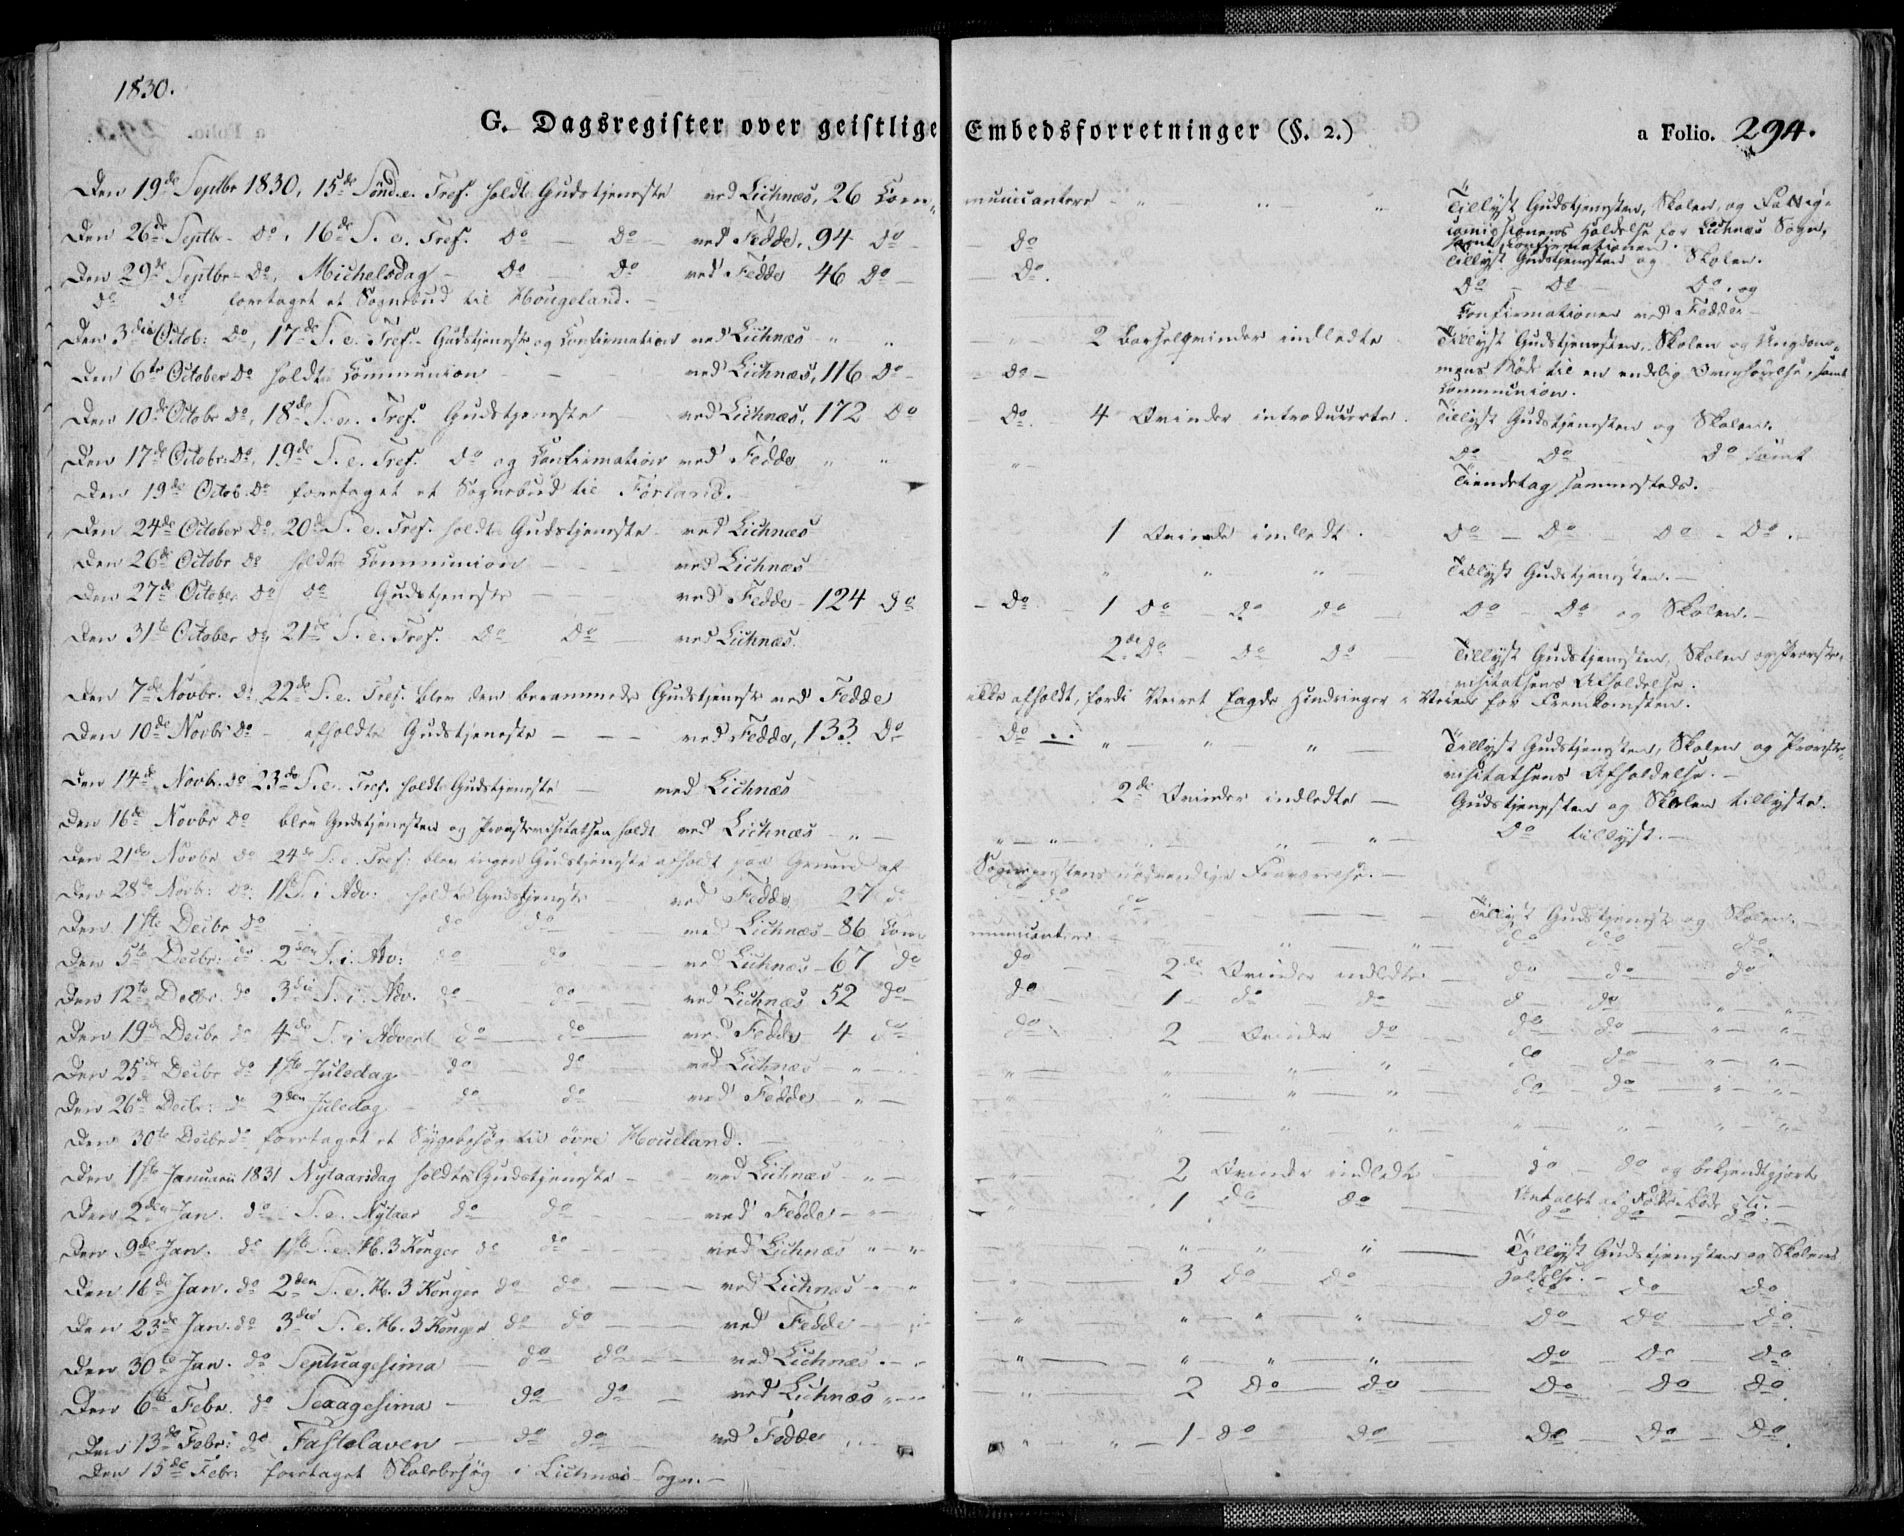 1830.
G. Dagsregister over geistlige Embedsforretninger (§. 2.) a Folio. 294.
Den 19de Septbr 1830, 15de Sønd. e. Tref. holdt Gudstjeneste ved Lichnæs, 26 Com- municantere - " - " - " Tillyst Gudstjenesten, Skolen, og Fattig-
comissionens Holdelse for Lichnæs Sogn,
samt Confirmationen.
Den 26de Septbr - do, 16de S. e. Tref. do - do - ved Fedde, 94 do - do Tillyst Gudstjenesten og Skolen.
Den 29de Septbr - do, Michelsdag - do - do ved Fedde 46 do - do. do - do - do, og
do do foretaget et Sognebud til Hougeland. - Confirmationen ved Fedde -
Den 3die Octob: do, 17de S. e. Tref. - Gudstjeneste og Confirmation ved Lichnæs - " " 2 Barselqvinder indledte Tillyst Gudstjenesten, Skolen og Ungdom-
mens Møde til en endelig Overhørelse, samt
Communion.
Den 6te October do holdt Communion - - ved Lichnæs, 116 do - do -
Den 10de Octobr do, 18de S. e. Tref. Gudstjeneste ved Lichnæs, 172 do - do. - 4 Qvinder introducerte. Tillyst Gudstjenesten og Skolen.
Den 17de Octobr: do, 19de S. e. Tref. do og Confirmation ved Fedde " " " do - do - do samt
Tiendetag sammesteds.
Den 19de Octob. do foretaget et Sognebud til Førland. -
Den 24de October do, 20de S. e. Tref. holdt Gudstjeneste ved Lichnæs 1 Qvinde indledt. do - do do - do.
Den 26de Octobr do holdt Communion - - - ved Lichnæs " " " - Tillyst Gudstjenesten. -
Den 27de October do do Gudstjeneste - ved Fedde - 124 do - do - 1 do - do do - do do og Skolen. -
Den 31te October do 21de S. e. Tref. do do ved Lichnæs. 2de do - do do - Tillyst Gudstjenesten, Skolen og Provste-
visitatsens Afholdelse.
Den 7de Novbr. do, 22de S. e. Tref. blev den berammede Gudstjeneste ved Fedde ikke afholdt, fordi Veiret lagde Hindringer i Veien for Fremkomsten.
Den 10de Novbr do - afholdt Gudstjeneste - - - ved Fedde, 133 do - do - " - " - " - Tillyst Gudstjenesten, Skolen og Provste-
visitatsens Afholdelse. -
Den 14de Novbr. do 23de S. e. Tref. holdt Gudstjeneste - ved Lichnæs 2de Qvinder indledte - Gudstjenesten og Skolen tillyste.
Den 16de Novbr do blev Gudstjenesten og Provstevisitatsen holdt ved Lichnæs - " - " - " - " - " do tillyst. -
Den 21de Novbr do 24de S. e. Tref: blev ingen Gudstjeneste afholdt paa Grund af Sognepræstens nødvendige Fraværelse. -
Den 28de Novb: do: 1ste S. i Adv: holdt Gudstjeneste - ved Fedde 27 do do do - - - Tillyst Gudstjeneste og Skolen. -
Den 1ste Decbr do - - do do - ved Lichnæs - 86 Com- municantere - " - " - do do - do.
Den 5te Decbr: do - 2den S. i. Adv: do do - ved Lichnæs - 67 do do - 2de Qvinder indledte - do - do do
Den 12te Decbr. do 3die S. i. Adv. do - do - ved Lichnæs 52 do - do - 1 - do - do - do do " - " -
Den 19de Decbr do 4de S. i Advent do - do - ved Fedde 4 do - do - 2 - Qvinder do - do - do - " - " -
Den 25de Decbr do 1ste Juledag - do do - ved Lichnæs - " - - " - " " - " - do - do - " - " -
Den 26de Decbr: do 2den Juledag - do do - ved Fedde - " - - " - " " - " - do - do - " - " -
Den 30te Decbr do foretaget et Sygebesøg til øvre Houeland. - " - " - " - " - " -
Den 1ste Januarii 1831 Nytaarsdag holdtes Gudstjeneste - ved Lichnæs - " - - " - 2 Qvinder indledte - do - do og bekjendtgjort
Den 2den Jan. do - S. e. Nytaar do do - - ved Fedde - " - - " - 1 do do - do - do - do -
Den 9de Jan. do 1ste S. e. H. 3 Konger do do - - - ved Lichnæs " - " - " - " - " - " - Tillyst Gudstjenesten og Skolens
Holdelse. -
Den 16de Jan. do 2den S. e. H. 3 Konger do do - - - ved Lichnæs - " - " - 3 do - do - do - do - do
Den 23de Jan. do 3die S. e. H. 3 Konger do do - - ved Fedde - - " - " - " - " - do do - do.
Den 30te Jan. do Septuagesima - do do - - ved Lichnæs. - " - " - " - " - " - do - do - do
Den 6te Febr. do Sexagesima - do do - ved Lichnæs " - " - " 2 do - do - do - do - do
Den 13de Febr: do Fastelaven - do do - ved Fedde - " - " - 1 - do do - do - do - do.
Den 15de Febr: foretaget Skolebesøg i Lichnæs Sogn. -